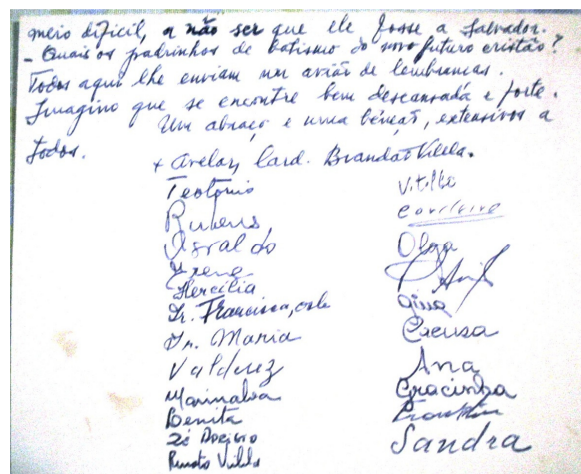 meio difícil, a não ser que ele fosse a Salvador.
- Quais os padrinhos de batismo do novo futuro cristão?
Todos aqui lhe enviam um avião de lembranças.
Imagino que se encontre bem descansada e forte.
Um abraço e uma bênção, extensivos a
todos.
+ Avelar Card. Brandão Vilela.
Teotonio
Rubens
Osvaldo
Irene
Hercília
Ir. Francisca,
Ir. Maria
Valderez
Marinalva
Benita
Zé Rogério
Renato Vilela
Vitilho
Olga
Gina
Creusa
Ana
Gracinha
Sandra